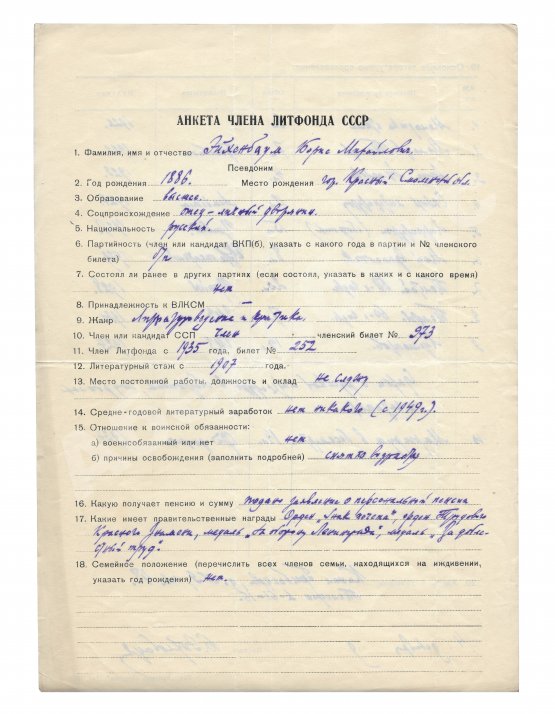 АНКЕТА ЧЛЕНА ЛИТФОНДА СССР
1. Фамилия, имя и отчество Эйхенбаум Борис Михайлович
Псевдоним
2. Год рождения 1886. Место рождения гор. Красный Смоленской обл.
3. Образование высшее.
4. Соцпроисхождение отец – личный дворянин.
5. Национальность русский.
6. Партийность (член или кандидат ВКП(б), указать с какого года в партии и № членского
билета) б/п
7. Состоял ли ранее в других партиях (если состоял, указать в каких и с какого время)
нет
8. Принадлежность к ВЛКСМ
9. Жанр Литературоведение и критика.
10. Член или кандидат ССП член членский билет № 973
11. Член Литфонда с 1935 года, билет № 252
12. Литературный стаж с 1907 года.
13. Место постоянной работы, должность и оклад не служу
14. Средне-годовой литературный заработок нет никакого (с 1949 г.).
15. Отношение к воинской обязанности:
а) военнообязанный или нет нет
б) причины освобождения (заполнить подробней) снят по возрасту
16. Какую получает пенсию и сумму подано заявление о персональной пенсии
17. Какие имеет правительственные награды Орден „Знак почета", орден Трудового
Красного Знамени, медаль „За оборону Ленинграда", медаль „За добле-
стный труд".
18. Семейное положение (перечислить всех членов семьи, находящихся на иждивении,
указать год рождения) нет.